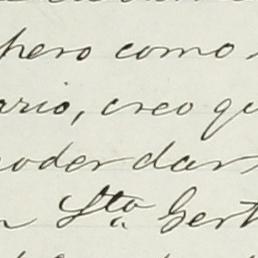 pero como
ario, creo qu
poder dar
Sta Gert